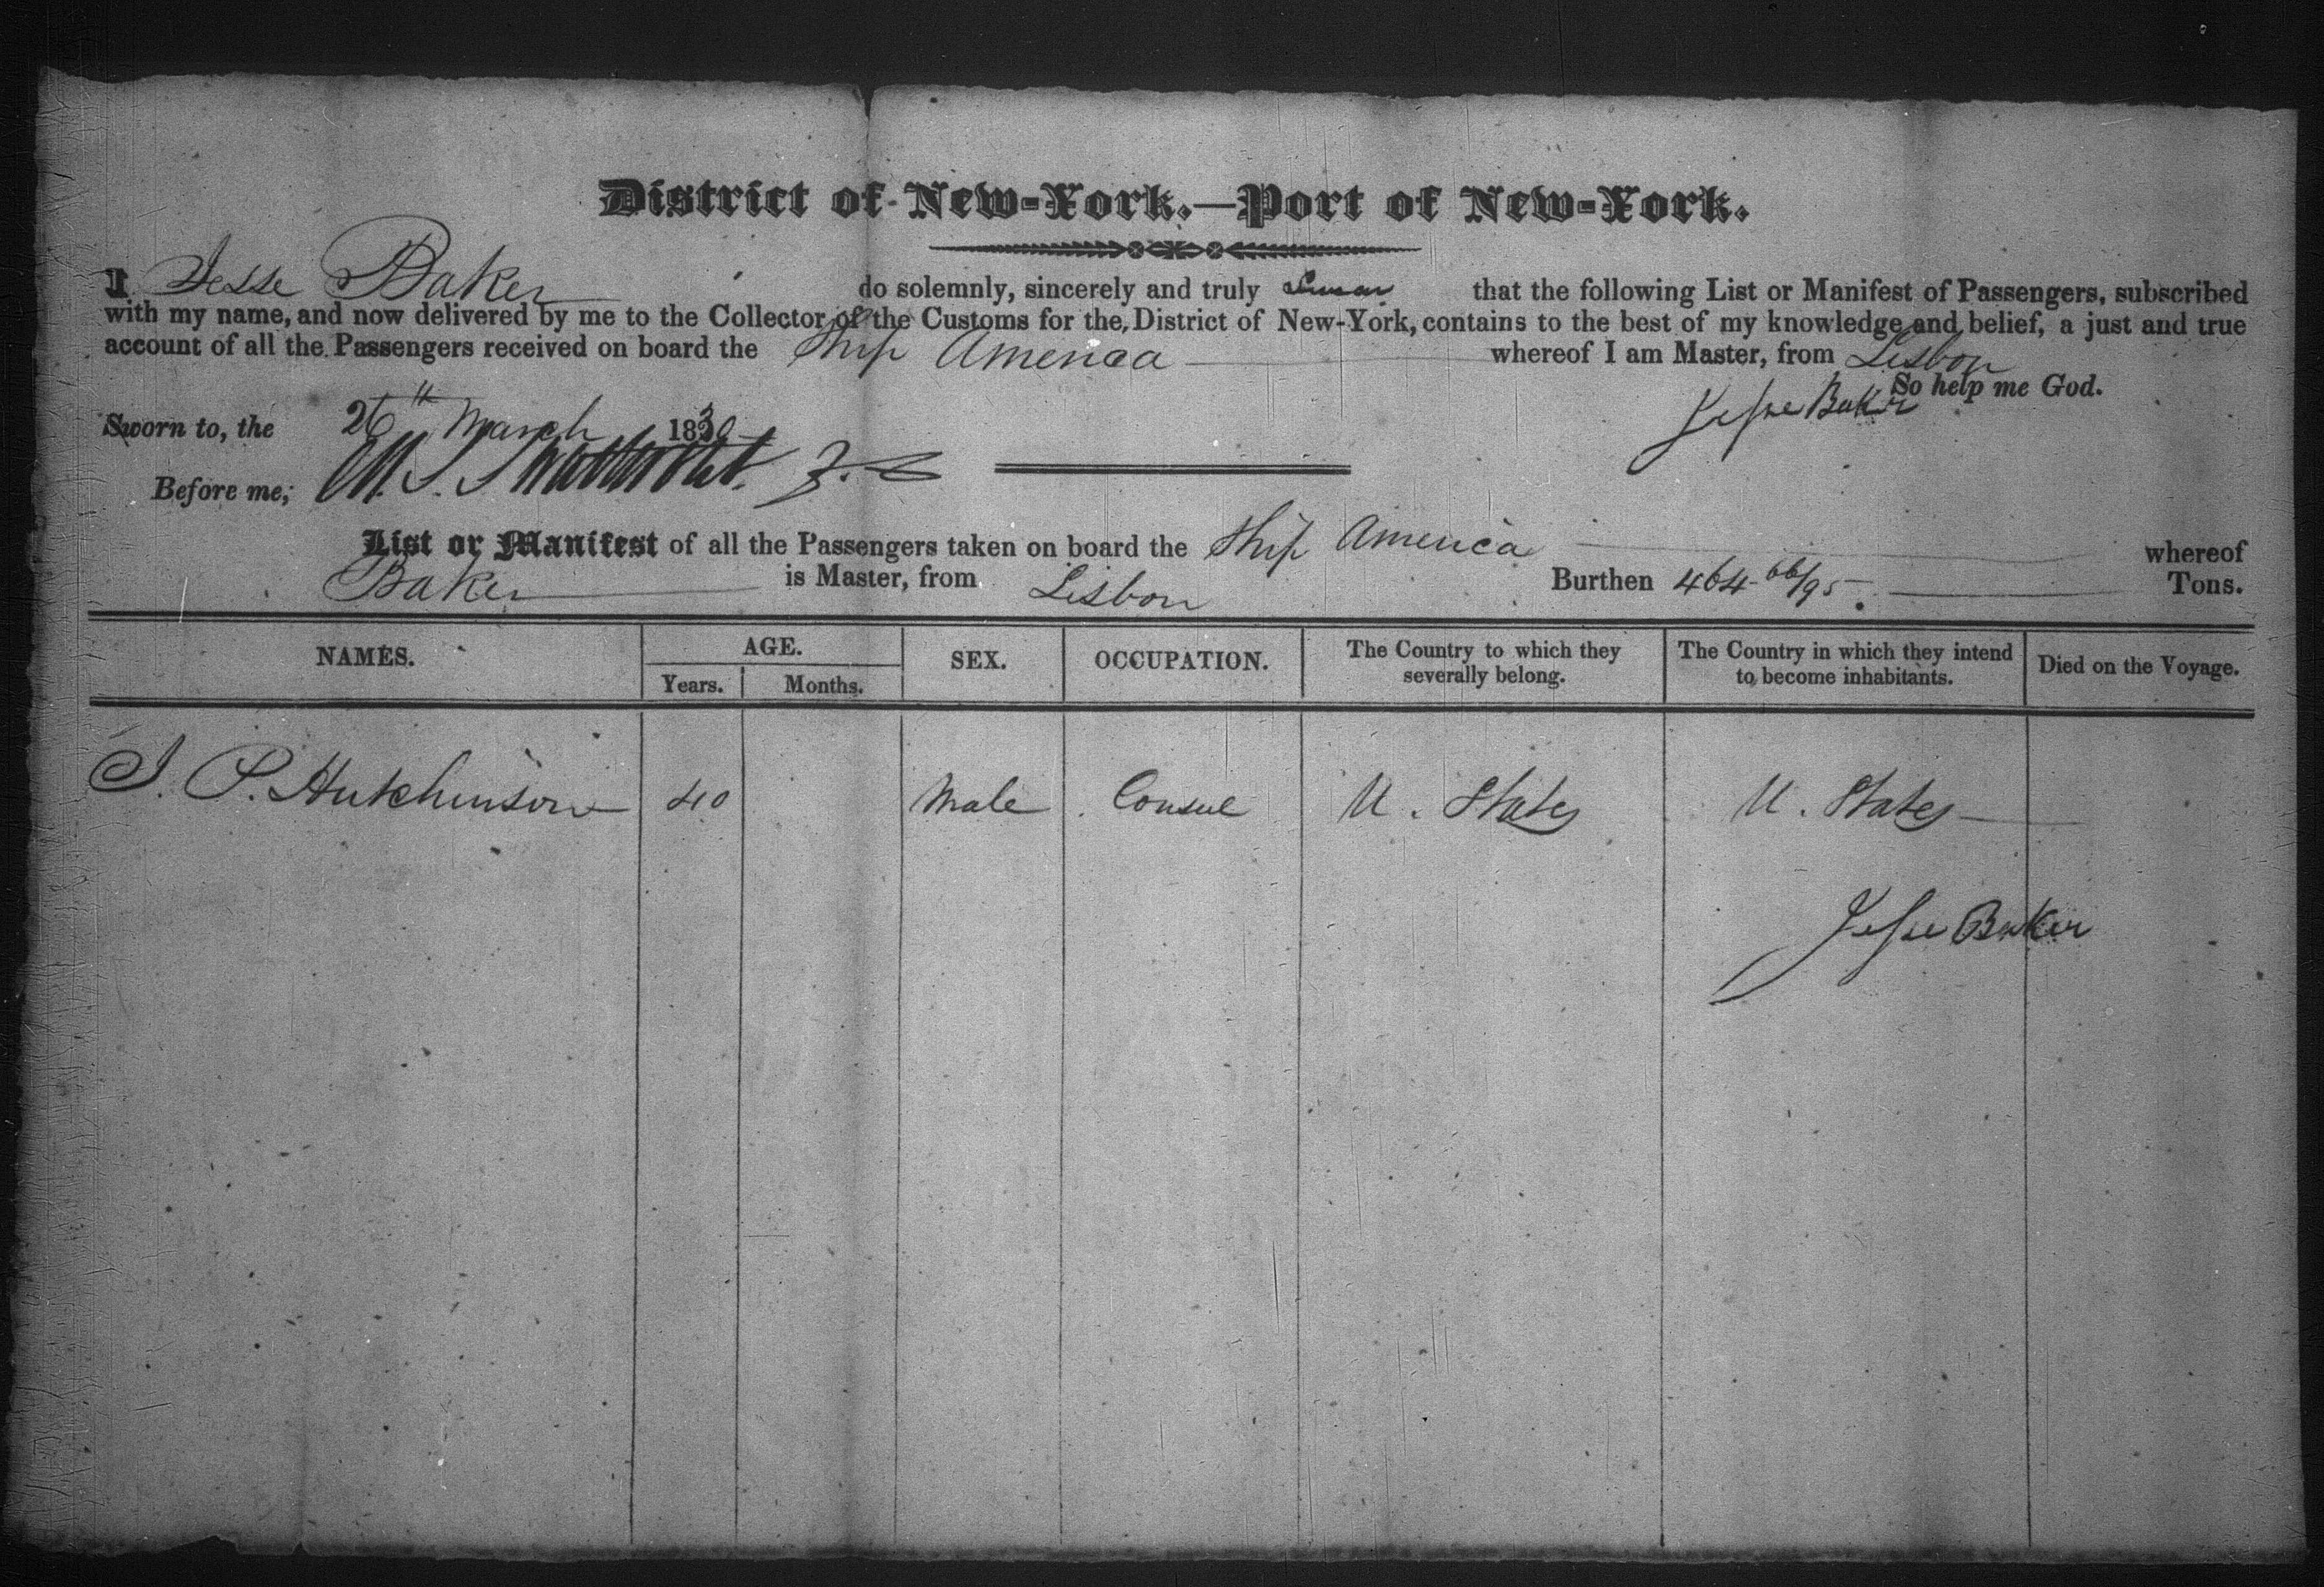 District of New-York.—Port of New-York.
I Jesse Baker do solemnly, sincerely and truly Swear that the following List or Manifest of Passengers, subscribed
with my name, and now delivered by me to the Collector of the Customs for the District of New-York, contains to the best of my knowledge and belief, a just and true
account of all the Passengers received on board the Ship America whereof I am Master, from Lisbon
So help me God.
Jesse Baker
Sworn to, the 26th March 1830
Before me,
List or Manifest of all the Passengers taken on board the Ship America whereof
Baker is Master, from Lisbon Burthen 464 66/95 Tons.
NAMES. AGE. SEX. OCCUPATION. The Country to which they severally belong. The Country in which they intend to become inhabitants. Died on the Voyage.
Years. Months.
I. P. Hutchinson 40 Male Consul U. States U. States
Jesse Baker